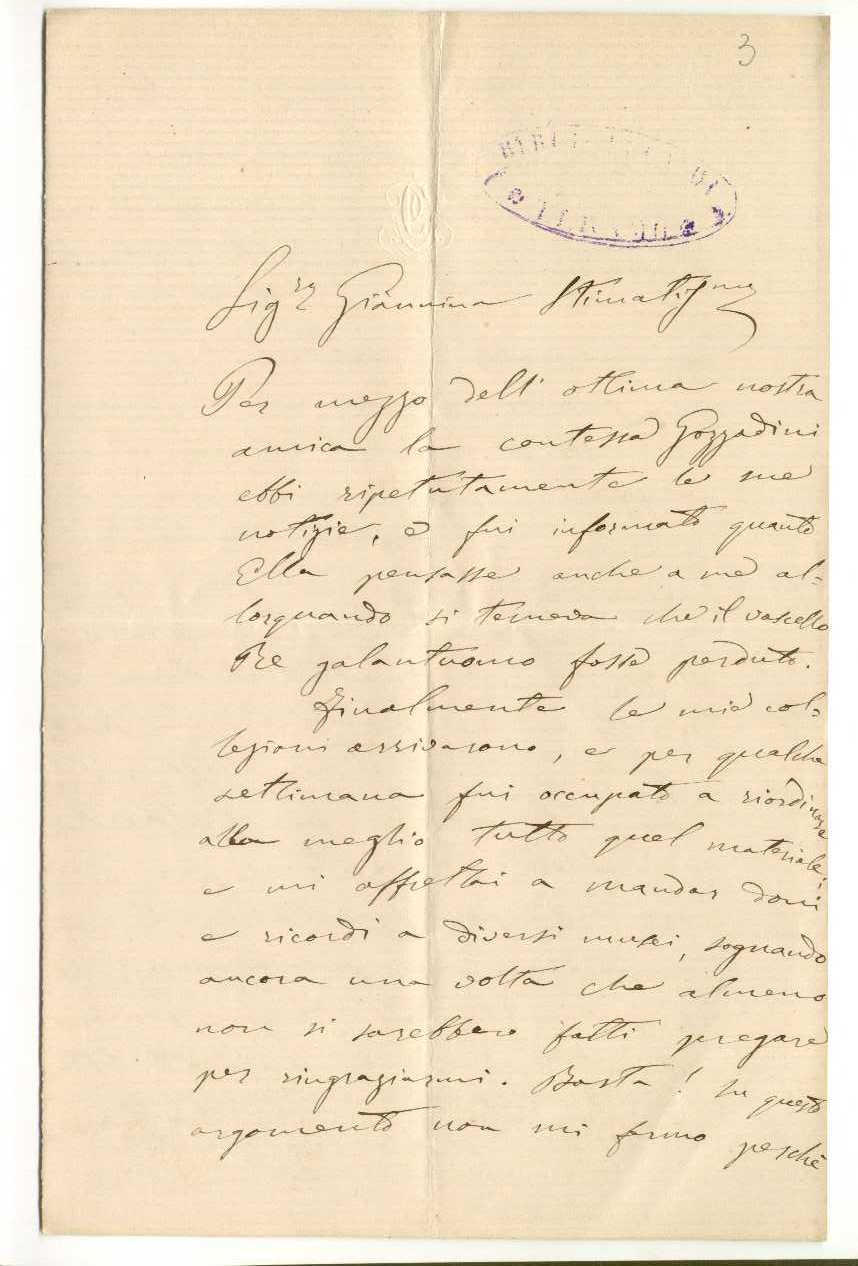 3
BIBLIOTECA DI
TERAMO
Sig.ra Giannina Stimatiss.ma
Per mezzo dell' ottima nostra
amica la contessa Gozzadini
ebbi ripetutamente le sue
notizie, e fui informato quanto
Ella pensasse anche a me al=
lorquando si temeva che il vascello
Re galantuomo fosse perduto.
Finalmente le mie col=
lezioni arrivarono, e per qualche
settimana fui occupato a riordinare
alla meglio tutto quel materiale;
e mi affrettai a mandar doni
e ricordi a diversi musei, sognando
ancora una volta che almeno
non si sarebbero fatti pregare
per ringraziarmi. Basta! In questo
argomento non mi fermo perchè